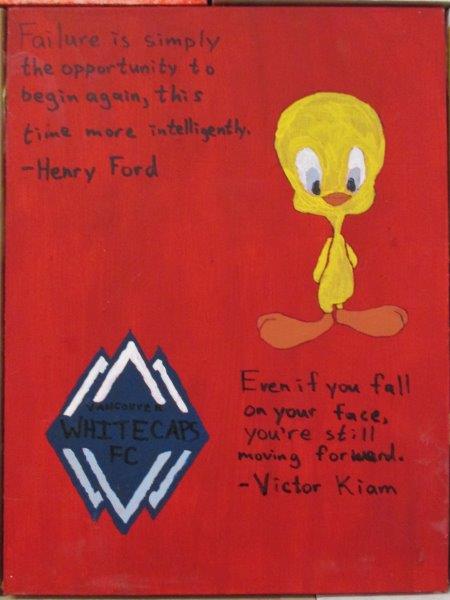 Failure is simply
the opportunity to
begin again, this
time more intelligently.
-Henry Ford
VANCOUVER
WHITECAPS
FC
Even if you fall
on your face,
you're still
moving forward.
-Victor Kiam